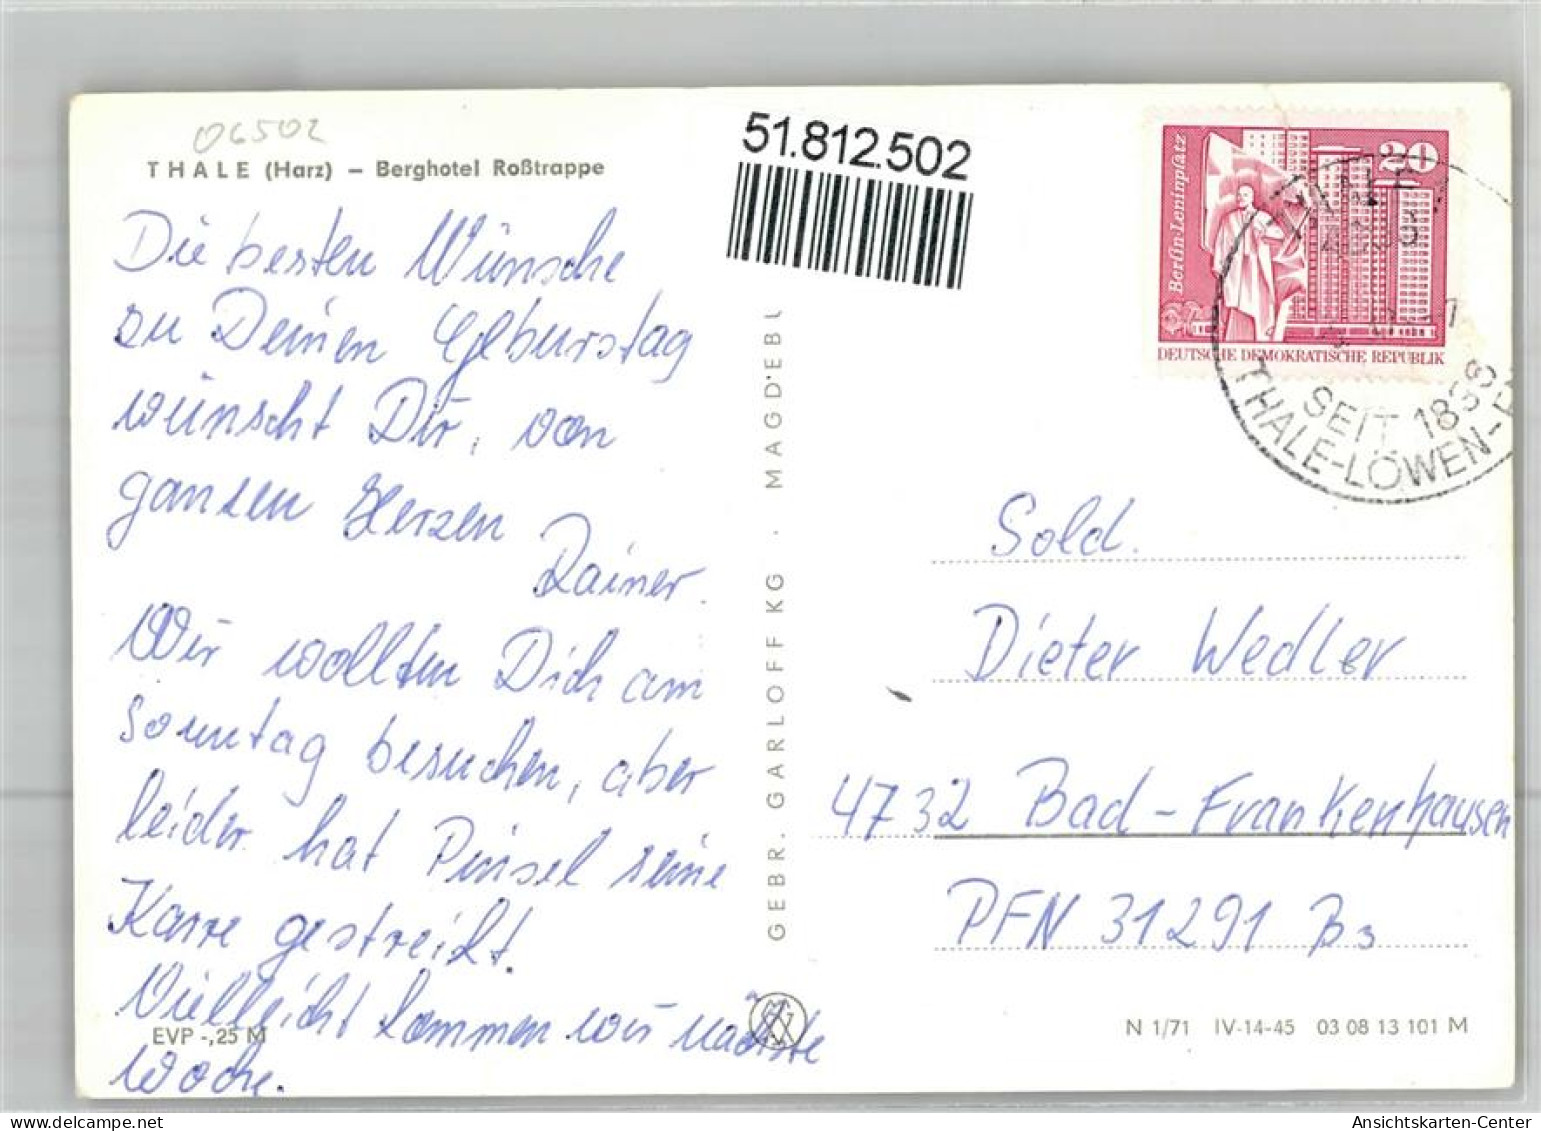 06502
THALE (Harz) – Berghotel Roßtrappe
Die besten Wünsche
zu Deinen Geburstag
wünscht Dir, von
ganzen Herzen
Rainer.
Wir wollten Dich am
Sonntag besuchen, aber
leider hat Pinsel seine
Karre gestreikt.
Vielleicht kommen wir nächste
Woche.
EVP -,25 M
GEBR. GARLOFF KG · MAGDEBURG
51.812.502
Berlin-Leninplatz
20
DEUTSCHE DEMOKRATISCHE REPUBLIK
THALE
SEIT 1838
THALE-LÖWEN-
Sold.
Dieter Wedler
4732 Bad-Frankenhausen
PFN 31291 B3
N 1/71 IV-14-45 03 08 13 101 M
Ansichtskarten-Center